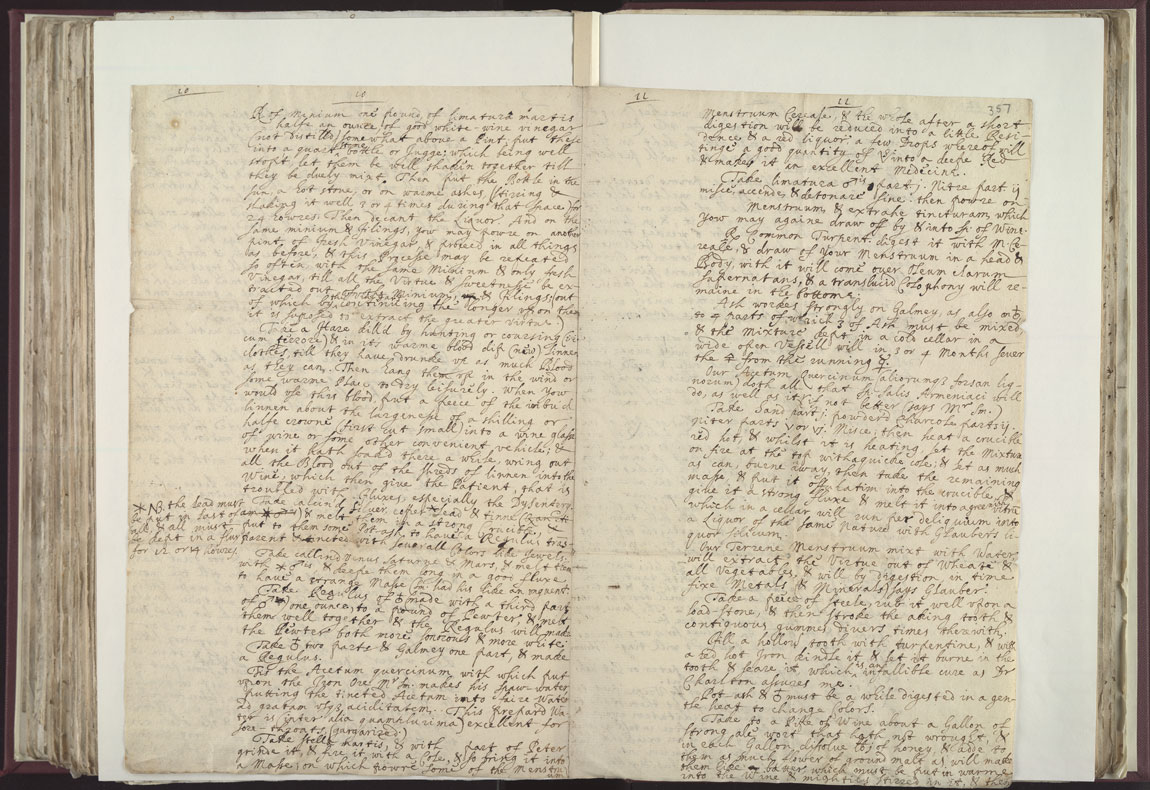 10
10
℞ of Minium one pound, of limatura martis
halfe an ounce, of good white-wine vinegar
(not Distill'd) somewhat above a Pint, put these
into a quart stone Bottle or Jugge: which being well
stopt let them be well shaken together till
they be duely mixt. Then put the Bottle in the
sun, a hot stone, or on warme ashes, stirring &
shaking it well 3 or 4 times during that space) for
24 howres. Then decant the Liquor. And on the
same minium & filings, you may powre on another
pint of fresh Vinegar, & proceed in all things
as before, & this Processe may be repeated
so often, with the same Minium & only fresh
Vinegar, till all the Virtue & sweetnesse be ex-
tracted out of the Minium, & filings, out
of which by continuing the longer upon them
it is suposed to extract the greater virtue.
Take a Hare kill'd by hunting or coursing
cum ferrore) & in its warme blood dip (new) linnen
clothes, till they have drunke up as much Blood
as they can. Then hang them up in the wind or
some warme Place to dry leisurely. When yow
would use this blood, put a peece of the imbu'd
linnen about the largenesse of a shilling or
halfe crowne (first cut small) into a wine glasse
of wine or some other convenient vehicle; &
when it hath soaked there a while, wring out
all the Blood out of the shreds of linnen into the
Wine, which then give the Patient, that is
troubled with Fluxes, especially the Dysentery.
Silver, coper Lead & tinne
& melt them in a strong crucible
put to them some Pot-ash, to have a Regulus trans-
parent & tincted with severall Colors like Jewels.
* NB. the Lead must
be put in last of
all; & all must
be kept in a flux
for 12 or 14 howres.
Take calcin'd Venus, Saturne & Mars, & melt them
with & keepe them long in a good fluxe
to have a strange Masse
Take Regulus of made with a third part
of one ounce, to a pound of Pewter, & melt
them well together & the Regulus will make
the Pewter both more sonorous & more white.
Take two parts & Galmey one part, & make
a Regulus.
Tis the Acetum quercinum, with which put
upon the Iron Ore Mr Sm. makes his Spaw-water
putting the tincted Acetum into faire Water
ad gratam usque aciditatem. This prepar'd Wa-
ter is (inter alia quamplurima) excellent for
sore-throats (gargarized)
Take stella martis, & with part of Peter
grinde it, & fire it with a Cole, & so bring it into
a Masse; on which powre some of the Menstru
um
11
11
357
Menstruum Cerreale, & the whole after a short
digestion will be reduced into a little Resi-
dence & a red liquor a few Drops whereof will
tinge a good quantity of into a deepe Red
& makes it an excellent Medecine.
Take limatura part j. Nitre part ij
misce, accende, & detonare sine. then powre on
Menstruum, & extrahe tincturam, which
yow may againe draw off by & into of Wine.
℞ Common Turpent. digest it with M. Ce-
reale, & draw of your Menstruum in a head &
Body, with it will come over Oleum clarum
supernatans, & a translucid Colophony will re-
maine in the bottome.
Ash workes strongly on Galmey, as also on
to 4 parts of which 3 of Ash must be mixed,
& the Mixture kept in a cold cellar in a
wide open Vessell will in 3 or 4 Months sever
the from the running
Our Acetum Quercinum (aliorumque forsan lig-
norum) doth all that Salis Armeniaci will
do, as well as it if not better (says Mr Sm.)
Take Sand part j. powderd Charcole parts ij.
Niter parts v or vj. Misce; then heat a crucible
red hot, & whilst it is heating, let the Mixture
on fire at the top with a quicke cole; & let as much
as can, burne away, then take the remaining
masse, & put it spoulatim into the crucible, &
give it a strong fluxe & melt it into a greenish vitru
which in a cellar will run per deliquium into
a Liquor of the same Nature with Glaubers li-
quor silicum.
Our Terrene Menstruum mixt with Water
will extract the Virtue out of Wheate &
all Vegetables, & will by digestion in time
fixe Metals & Minerals, says Glauber.
Take a peece of Steele, rub it well upon a
load-stone, & then stroke the aking tooth &
contiguous gummes divers times therewith.
Fill a hollow tooth with turpentine, & with
a red hot Iron kindle it & let it burne in the
tooth & seare it, which is an infallible cure as Dr
Charlton assures me.
Pot ash & must be a while digested in a gen-
tle heat to change Colors.
Take to a Pipe of Wine about a Gallon of
strong ale wort that hath not wrought, &
in each Gallon dissolve of honey, & adde to
them as much flower of ground malt as will make
them like batter, which must be put in warme
into the Wine & mightily stirred in it, & then